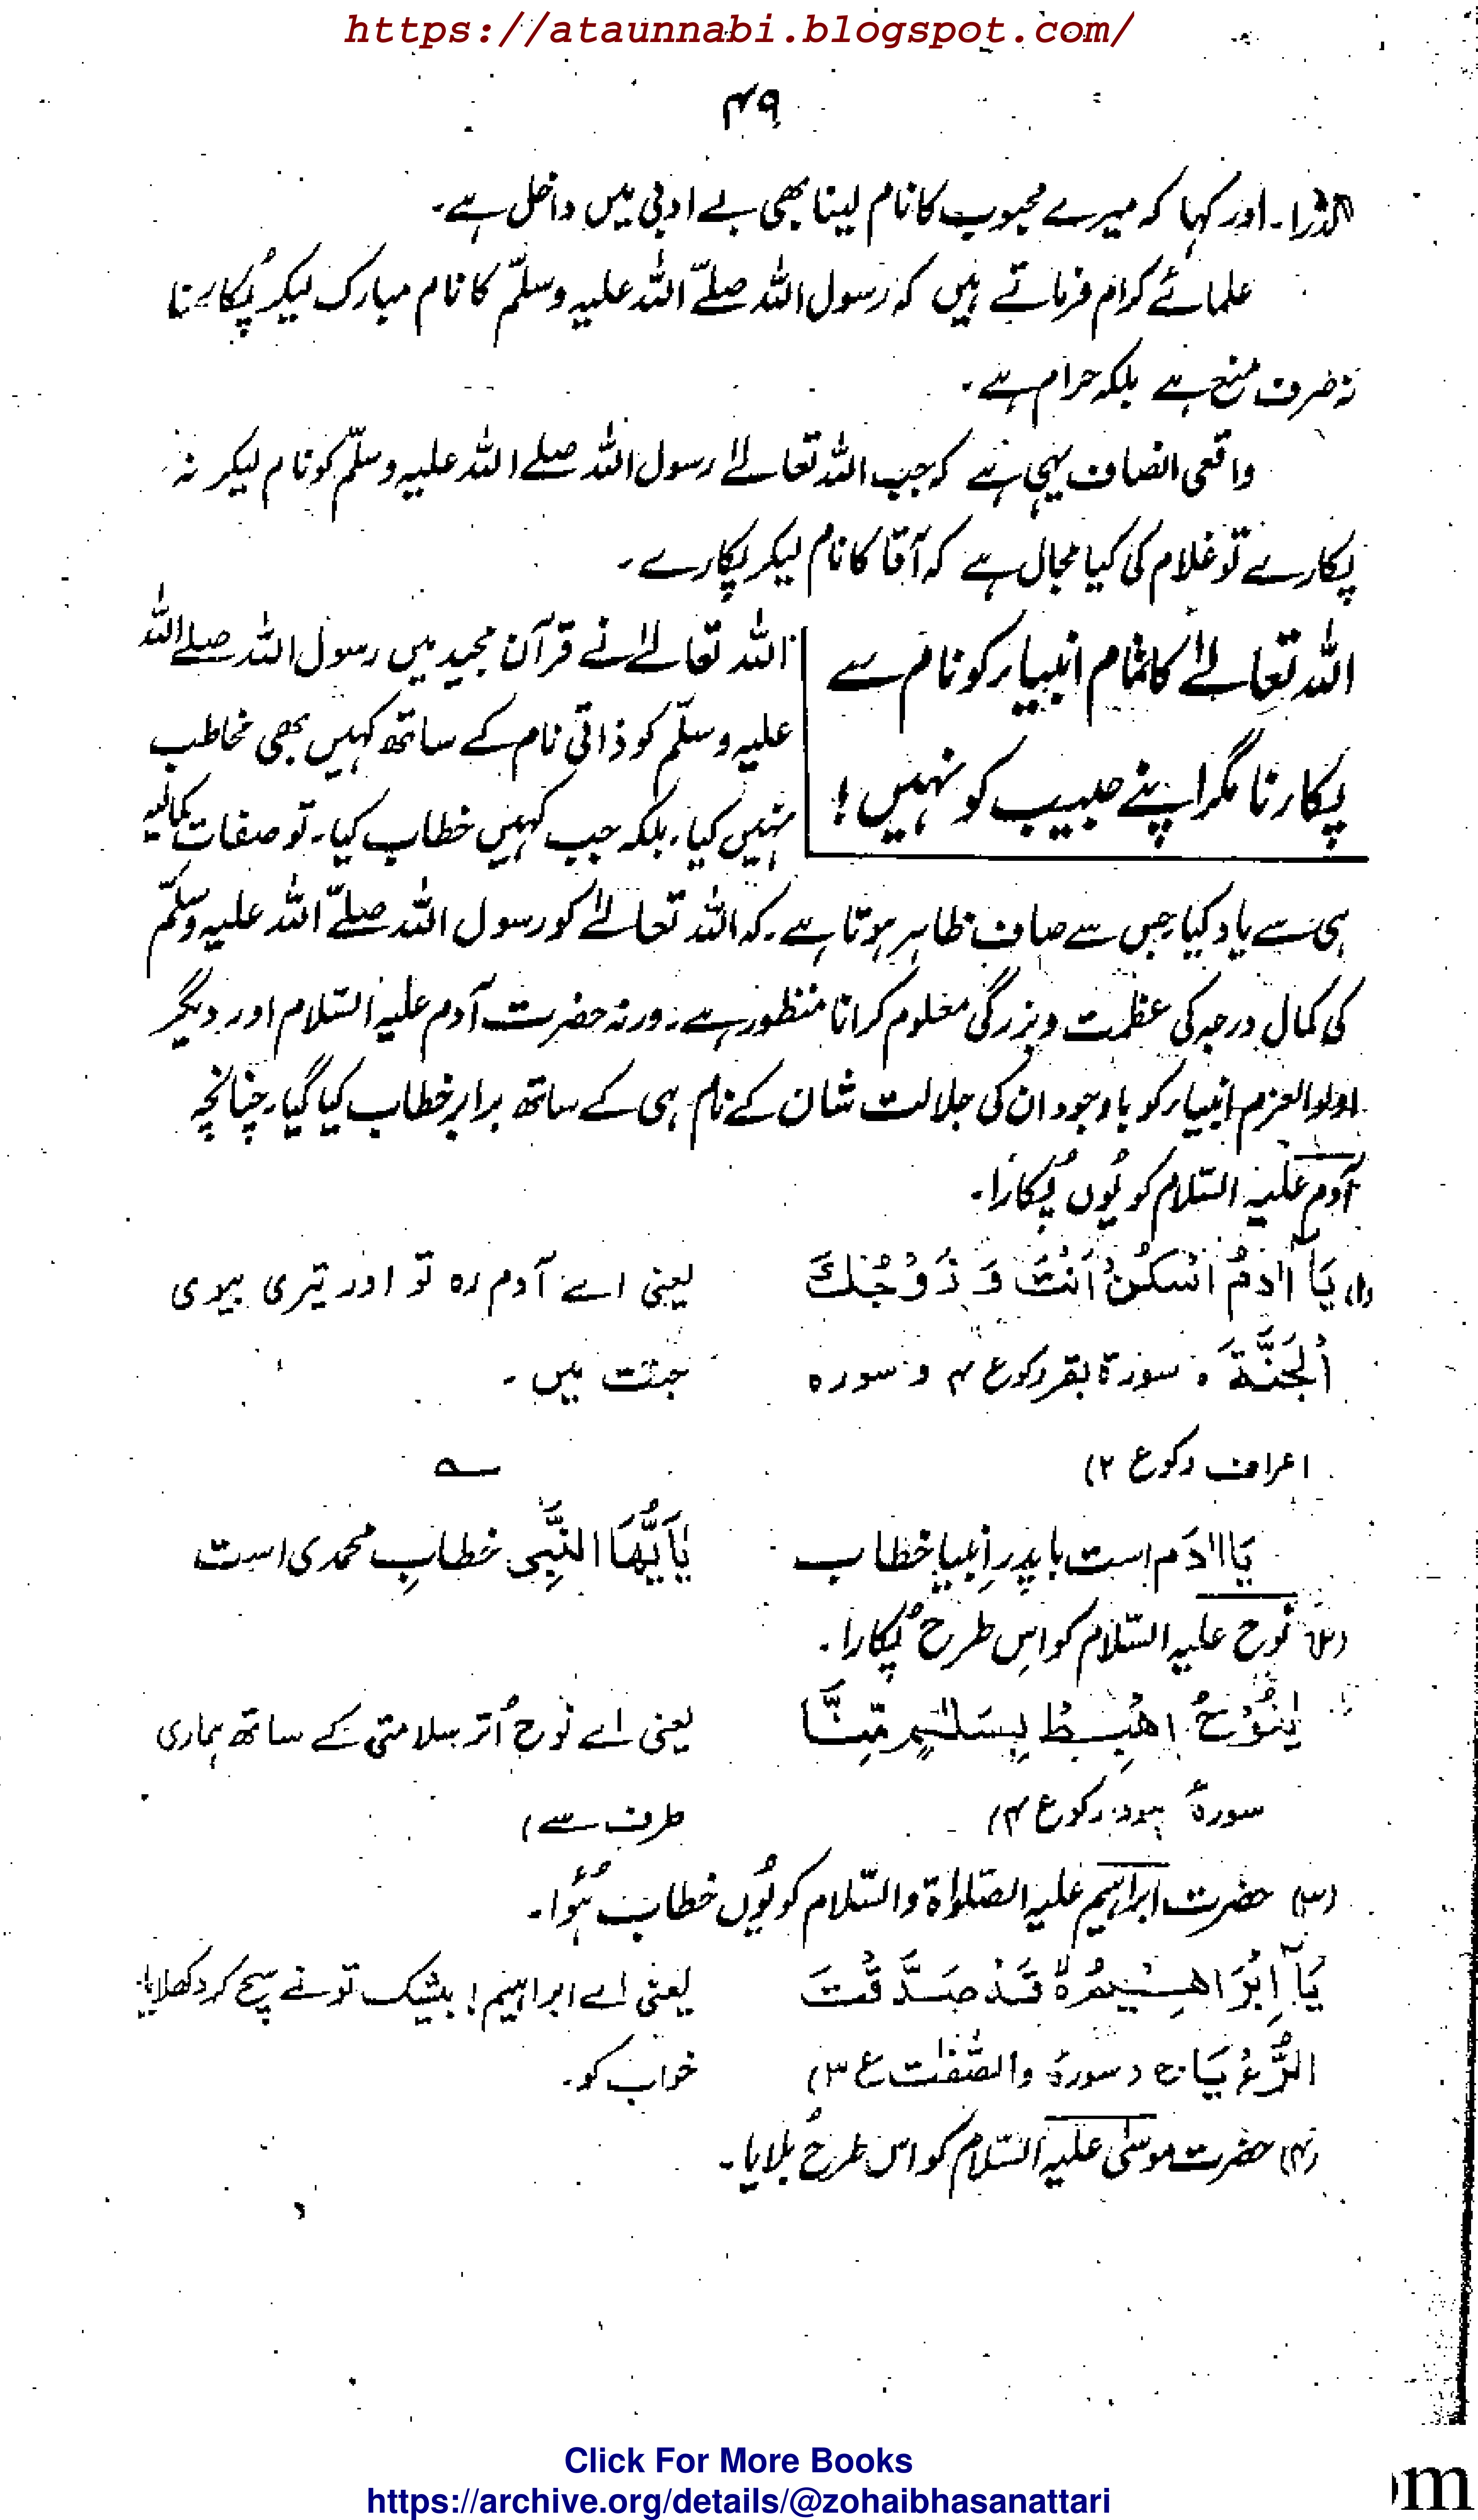 https://ataunnabi.blogspot.com/
۴۹
اور کہا کہ میرے محبوب کا نام لینا بھی بے ادبی میں داخل ہے۔
علمائے کرام فرماتے ہیں کہ رسول اللہ صلے اللہ علیہ وسلم کا نام مبارک لیکر پُکارنا
نہ صرف منع ہے بلکہ حرام ہے۔
واقعی انصاف یہی ہے کہ جب اللہ تعالےٰ رسول اللہ صلے اللہ علیہ وسلّم کو نام لیکر نہ
پکارے تو غلام کی کیا مجال ہے کہ آقا کا نام لیکر پکارے۔
اللہ تعالےٰ کا تمام انبیاء کو نام سے
پکارنا مگر اپنے حبیب کو نہیں!
اللہ تعالےٰ نے قرآن مجید میں رسول اللہ صلے اللہ
علیہ وسلّم کو ذاتی نام کے ساتھ کہیں بھی مخاطب
نہیں کیا۔ بلکہ جب کہیں خطاب کیا۔ تو صفات کمالیہ
ہی سے یاد کیا جس سے صاف ظاہر ہوتا ہے۔ کہ اللہ تعالےٰ کو رسول اللہ صلےّ اللہ علیہ وسلّم
کی کمال درجہ کی عظمت و بزرگی معلوم کرانا منظور ہے۔ ورنہ حضرت آدم علیہ السّلام اور دیگر
اولوالعزم انبیاء کو باوجود ان کی جلالت شان کے نام ہی کے ساتھ برابر خطاب کیا گیا۔ چنانچہ
آدم علیہ السّلام کو یُوں پُکارا۔
(۱) یَا اٰدَمُ اسْکُنْ اَنْتَ وَ زَوْجُكَ
الْجَنَّةَ ہ سورۃ بقر رکوع ۴ و سورہ
اعراف رکوع ۲)
یعنی اے آدم رہ تو اور تیری بیوی
جنت میں۔
؎
یَا اٰدَم است با پدرِ انبیا خطاب
یٰاَیُّهَا النَّبِّی خطابِ محمدی است
(۲) نوح علیہ السّلام کو اِس طرح پُکارا۔
یٰنُوْحُ اهْبِطْ بِسَلٰمٍ مِّنَّا
سورۂ ہود رکوع ۴)
یعنی اے نوح اُتر سلامتی کے ساتھ ہماری
طرف سے)
(۳) حضرت ابراہیم علیہ الصّلوٰۃ والسّلام کو یُوں خطاب ہُوا۔
یَا اِبْرَاهِیْمُ ہ قَدْ صَدَّقْتَ
الرُّءْیَا ہ (سورۂ والصّٰفٰت ع ۳)
یعنی اے ابراہیم! بیشک تو نے سچ کر دکھلایا
خواب کو۔
(۴) حضرت موسیٰ علیہ السّلام کو اس طرح بلایا۔
Click For More Books
https://archive.org/details/@zohaibhasanattari